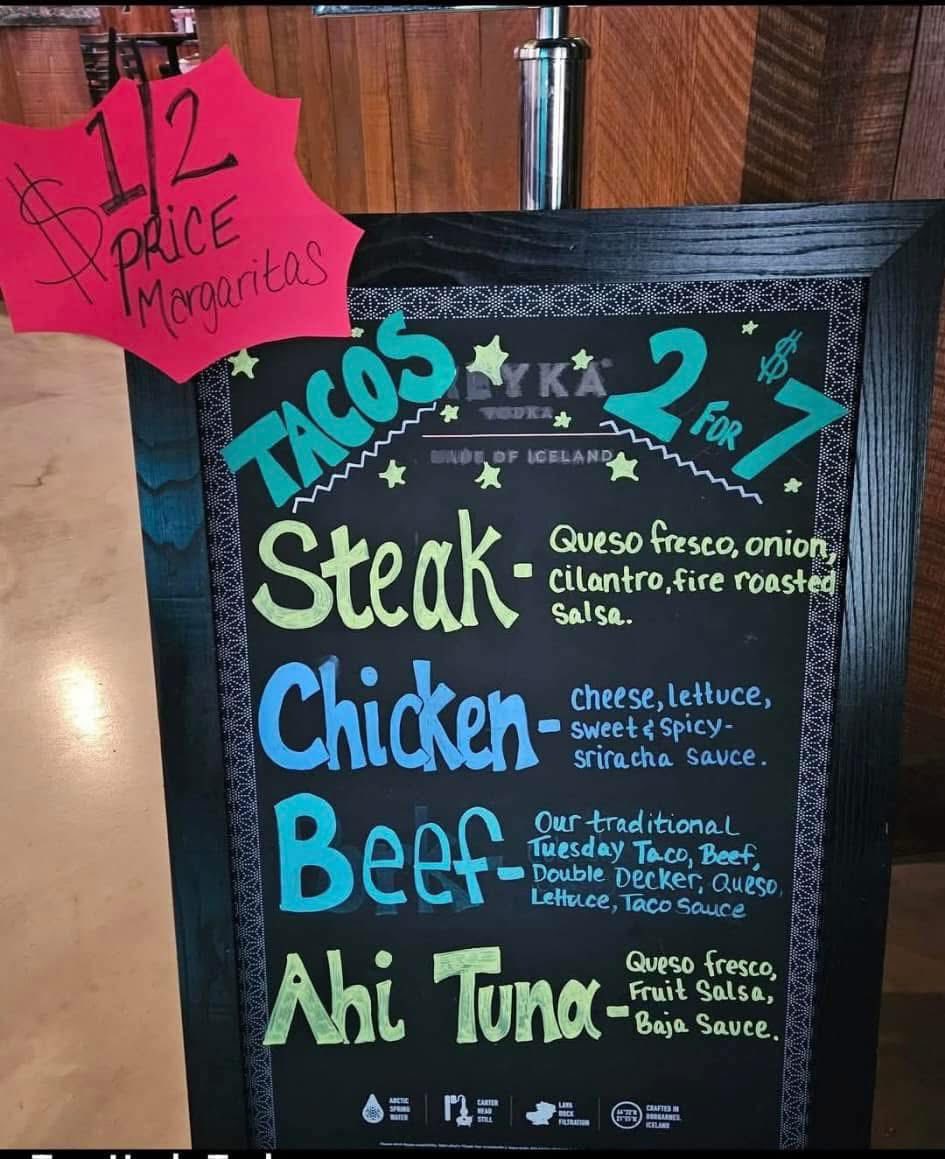 $ 1/2
PRICE
Margaritas
TACOS
2 FOR $7
VODKA
MADE OF ICELAND
Steak- Queso fresco, onion,
cilantro, fire roasted
salsa.
Chicken- cheese, lettuce,
sweet & spicy-
sriracha sauce.
Beef- Our traditional
Tuesday Taco, Beef,
Double Decker, Queso,
Lettuce, Taco Sauce
Ahi Tuna- Queso fresco,
Fruit Salsa,
Baja Sauce.
ARCTIC
SPRING
WATER
CARTER
HEAD
STILL
LAVA
ROCK
FILTRATION
CRAFTED IN
BORGARNES,
ICELAND